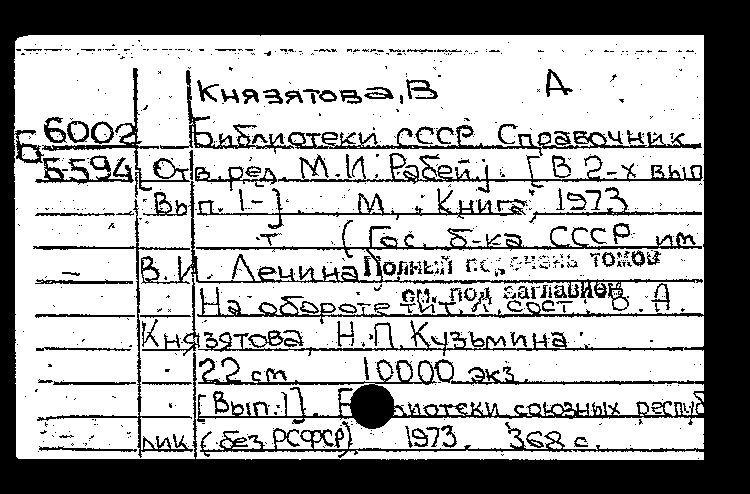 Князятова, В А
Б 6002 Библиотеки СССР. Справочник
Б-594 [Отв. ред. М.И. Рабей]. [В 2-х вып
Вып. 1-]. М., "Книга", 1973
т (Гос. б-ка СССР им
В.И. Ленина). Полный перечень томов
см. под заглавием
На обороте тит. л. сост.: В. А.
Князятова, Н.П. Кузьмина.
22 см. 10000 экз.
[Вып. 1]. Библиотеки союзных респуб
лик (без РСФСР). 1973. 368 с.